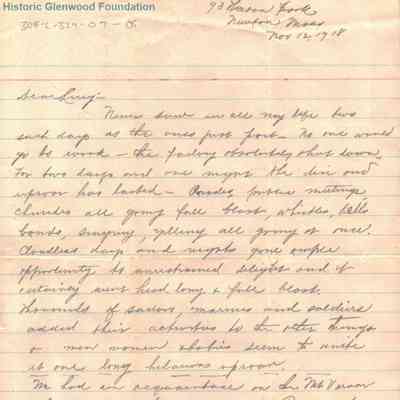 Historic Glenwood Foundation
Newton Mass
Nov 12, 1918
Dear
Never in all my life two
such days as the ones just past - No one would
go to work - the factory absolutely shut down
For two days and one night the din and
uproar has lasted - public meetings
churches all going full blast, whistles, bells
bands, singing, yelling all going at once.
Cloudless days and nights gave ample
opportunity to unrestrained delight and it
certainly went head long & full blast.
thousands of sailors, marines and soldiers
added their activities to the other things
men women seem to unite
one long hilarious uproar.
We had an acquaintance on the Mt Vernon